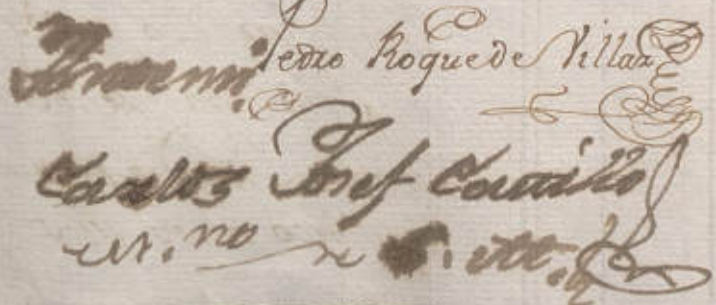 Ante mi. Pedro Roque de Villar
Carlos Josef Carrillo
es.no de S. M.